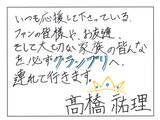 いつも応援して下さっている、
ファンの皆様や、お友達、
そして大切な家族の皆んな
を必ずグランプリへ
連れて行きます。
髙橋祐理